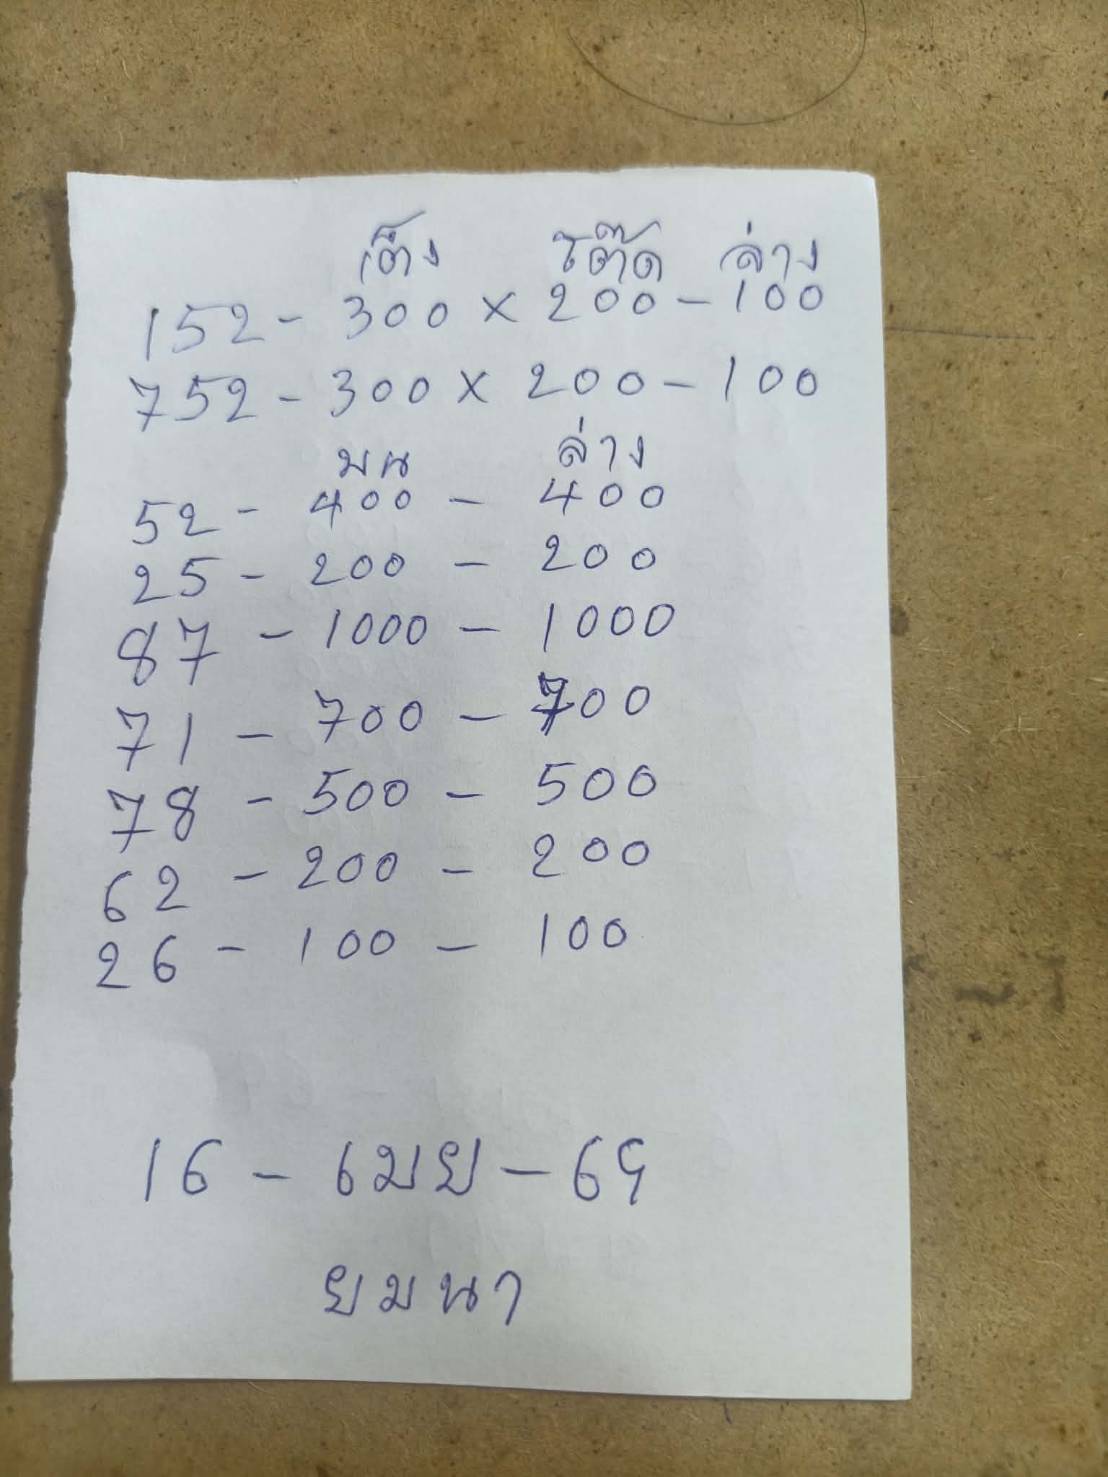 เต็ง โต๊ด ล่าง
152 - 300 x 200 - 100
752 - 300 x 200 - 100
บน ล่าง
52 - 400 - 400
25 - 200 - 200
87 - 1000 - 1000
71 - 700 - 700
78 - 500 - 500
62 - 200 - 200
26 - 100 - 100
16 - เมย - 69
ยมนา